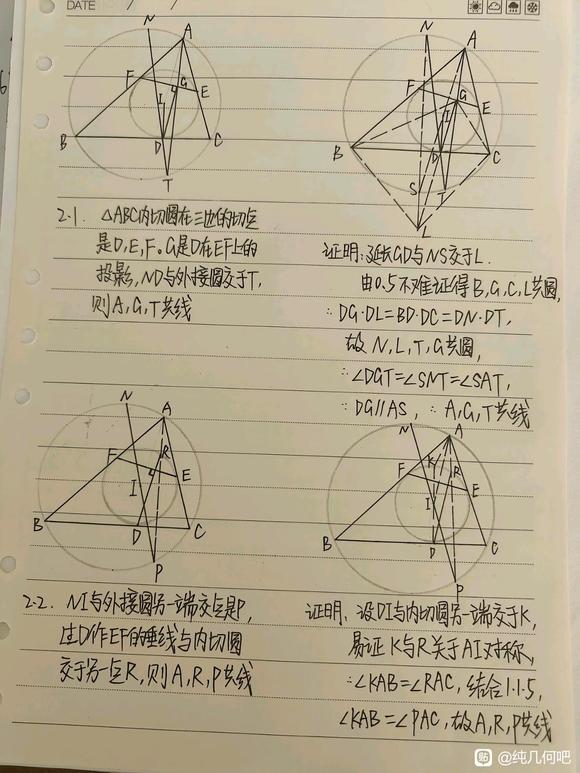 DATE / /
N
A
F
G
I
E
B
D
C
T
N
A
F
G
I
E
B
D
C
S
T
L
2.1. △ABC内切圆在三边的切点
是D,E,F。G是D在EF上的
投影,ND与外接圆交于T,
则A,G,T共线
证明:延长GD与NS交于L.
由0.5不难证得B,G,C,L共圆,
∴DG·DL=BD·DC=DN·DT,
故N,L,T,G共圆,
∴∠DGT=∠SNT=∠SAT,
∴DG∥AS, ∴A,G,T共线
N
A
F
R
I
E
B
D
C
P
N
A
F
K
R
I
E
B
D
C
P
2.2. NI与外接圆另一端交点是P,
过D作EF的垂线与内切圆
交于另一点R,则A,R,P共线
证明:设DI与内切圆另一端交于K,
易证K与R关于AI对称,
∴∠KAB=∠RAC,结合1.1.5,
∠KAB=∠PAC,故A,R,P共线
贴 @纯几何吧